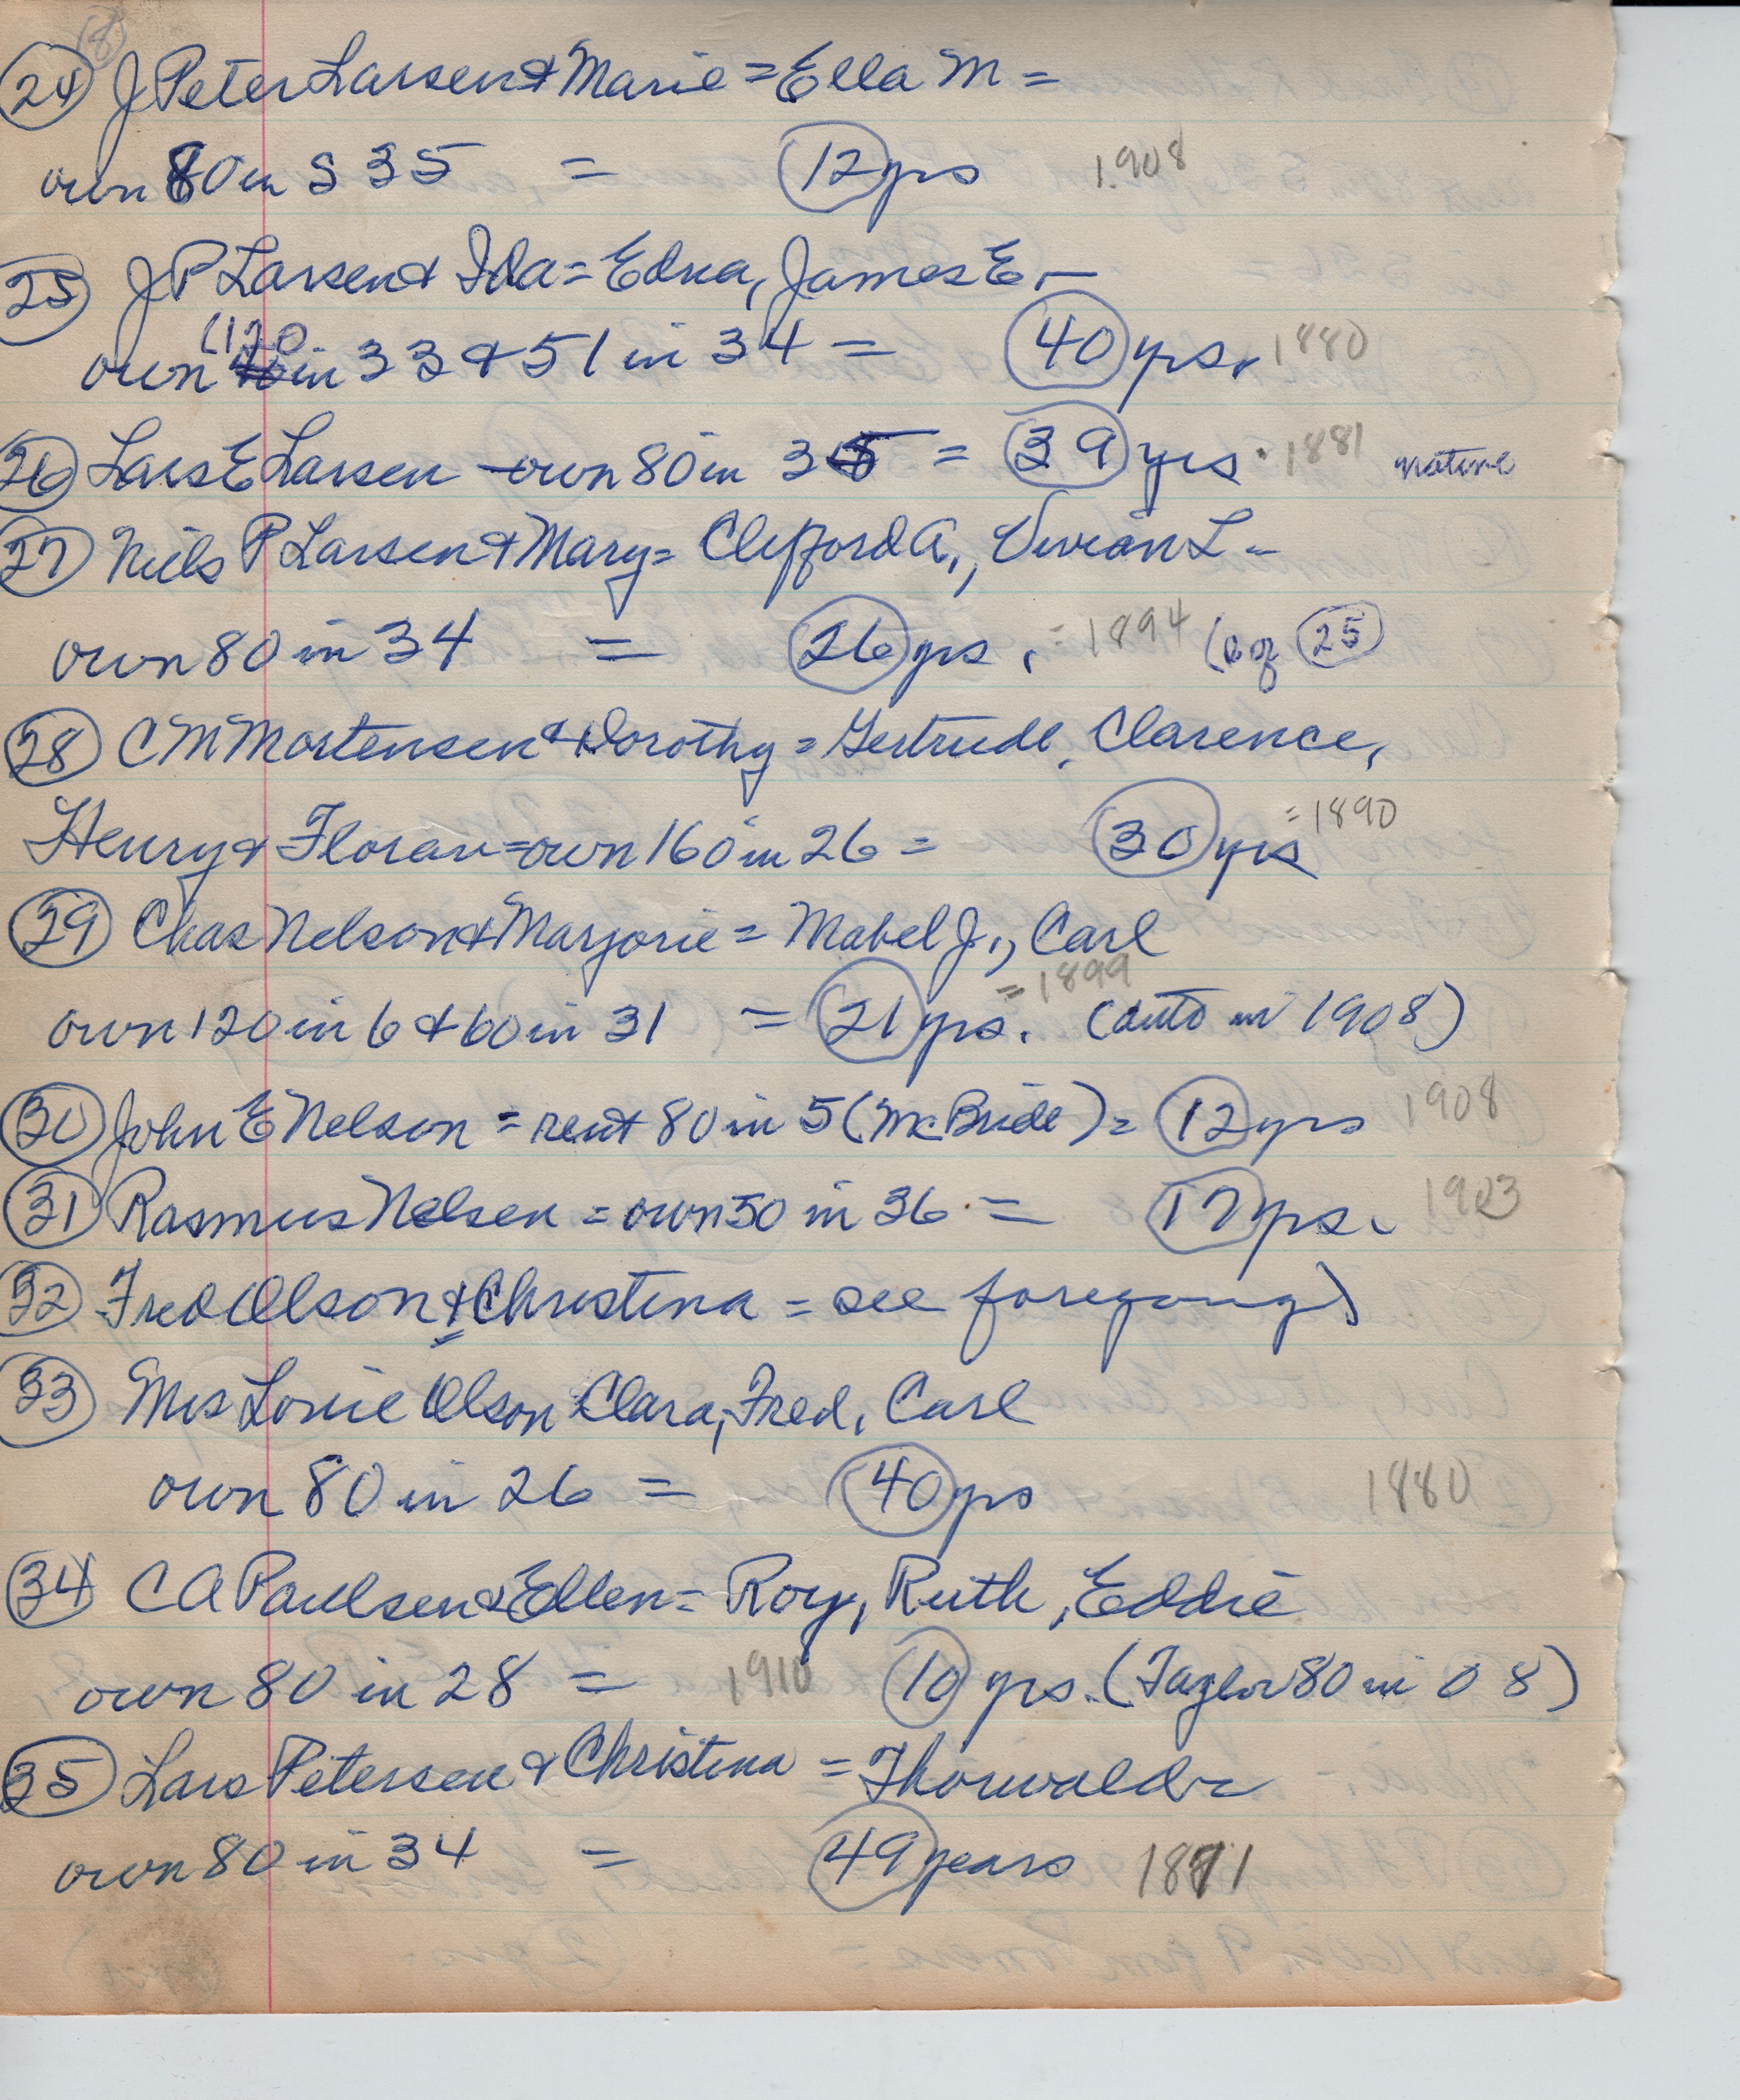 (8)
(24) J Peter Larsen & Marie = Ella M =
own 80 in S 35 = (12) yrs 1908
(25) J P Larsen & Ida = Edna, James E, -
(120
own 40 in 33 & 51 in 34 = (40) yrs. 1880
(26) Lars E Larsen - own 80 in 35 = (39) yrs. 1881 native
(27) Niels P Larsen & Mary = Clifford A., Vivian L -
own 80 in 34 = (26) yrs. = 1894 (of (25)
(28) C M Mortensen & Dorothy = Gertrude, Clarence,
Henry & Floran = own 160 in 26 = (30) yrs = 1890
(29) Chas Nelson & Marjorie = Mabel J., Carl
own 120 in 6 & 60 in 31 = (21) yrs. = 1899 (auto in 1908)
(30) John E Nelson = rent 80 in 5 (McBride) = (12) yrs 1908
(31) Rasmus Nelsen = own 50 in 36 = (17) yrs. 1903
(32) Fred Olson & Christina = see foregoing)
(33) Mrs Louie Olson Clara, Fred, Carl
own 80 in 26 = (40) yrs 1880
(34) C A Paulsen & Ellen = Roy, Ruth, Eddie
own 80 in 28 = 1910 (10) yrs. (Taylor 80 in 08)
(35) Lars Petersen & Christina = Thorwald
own 80 in 34 = (49) years 1871